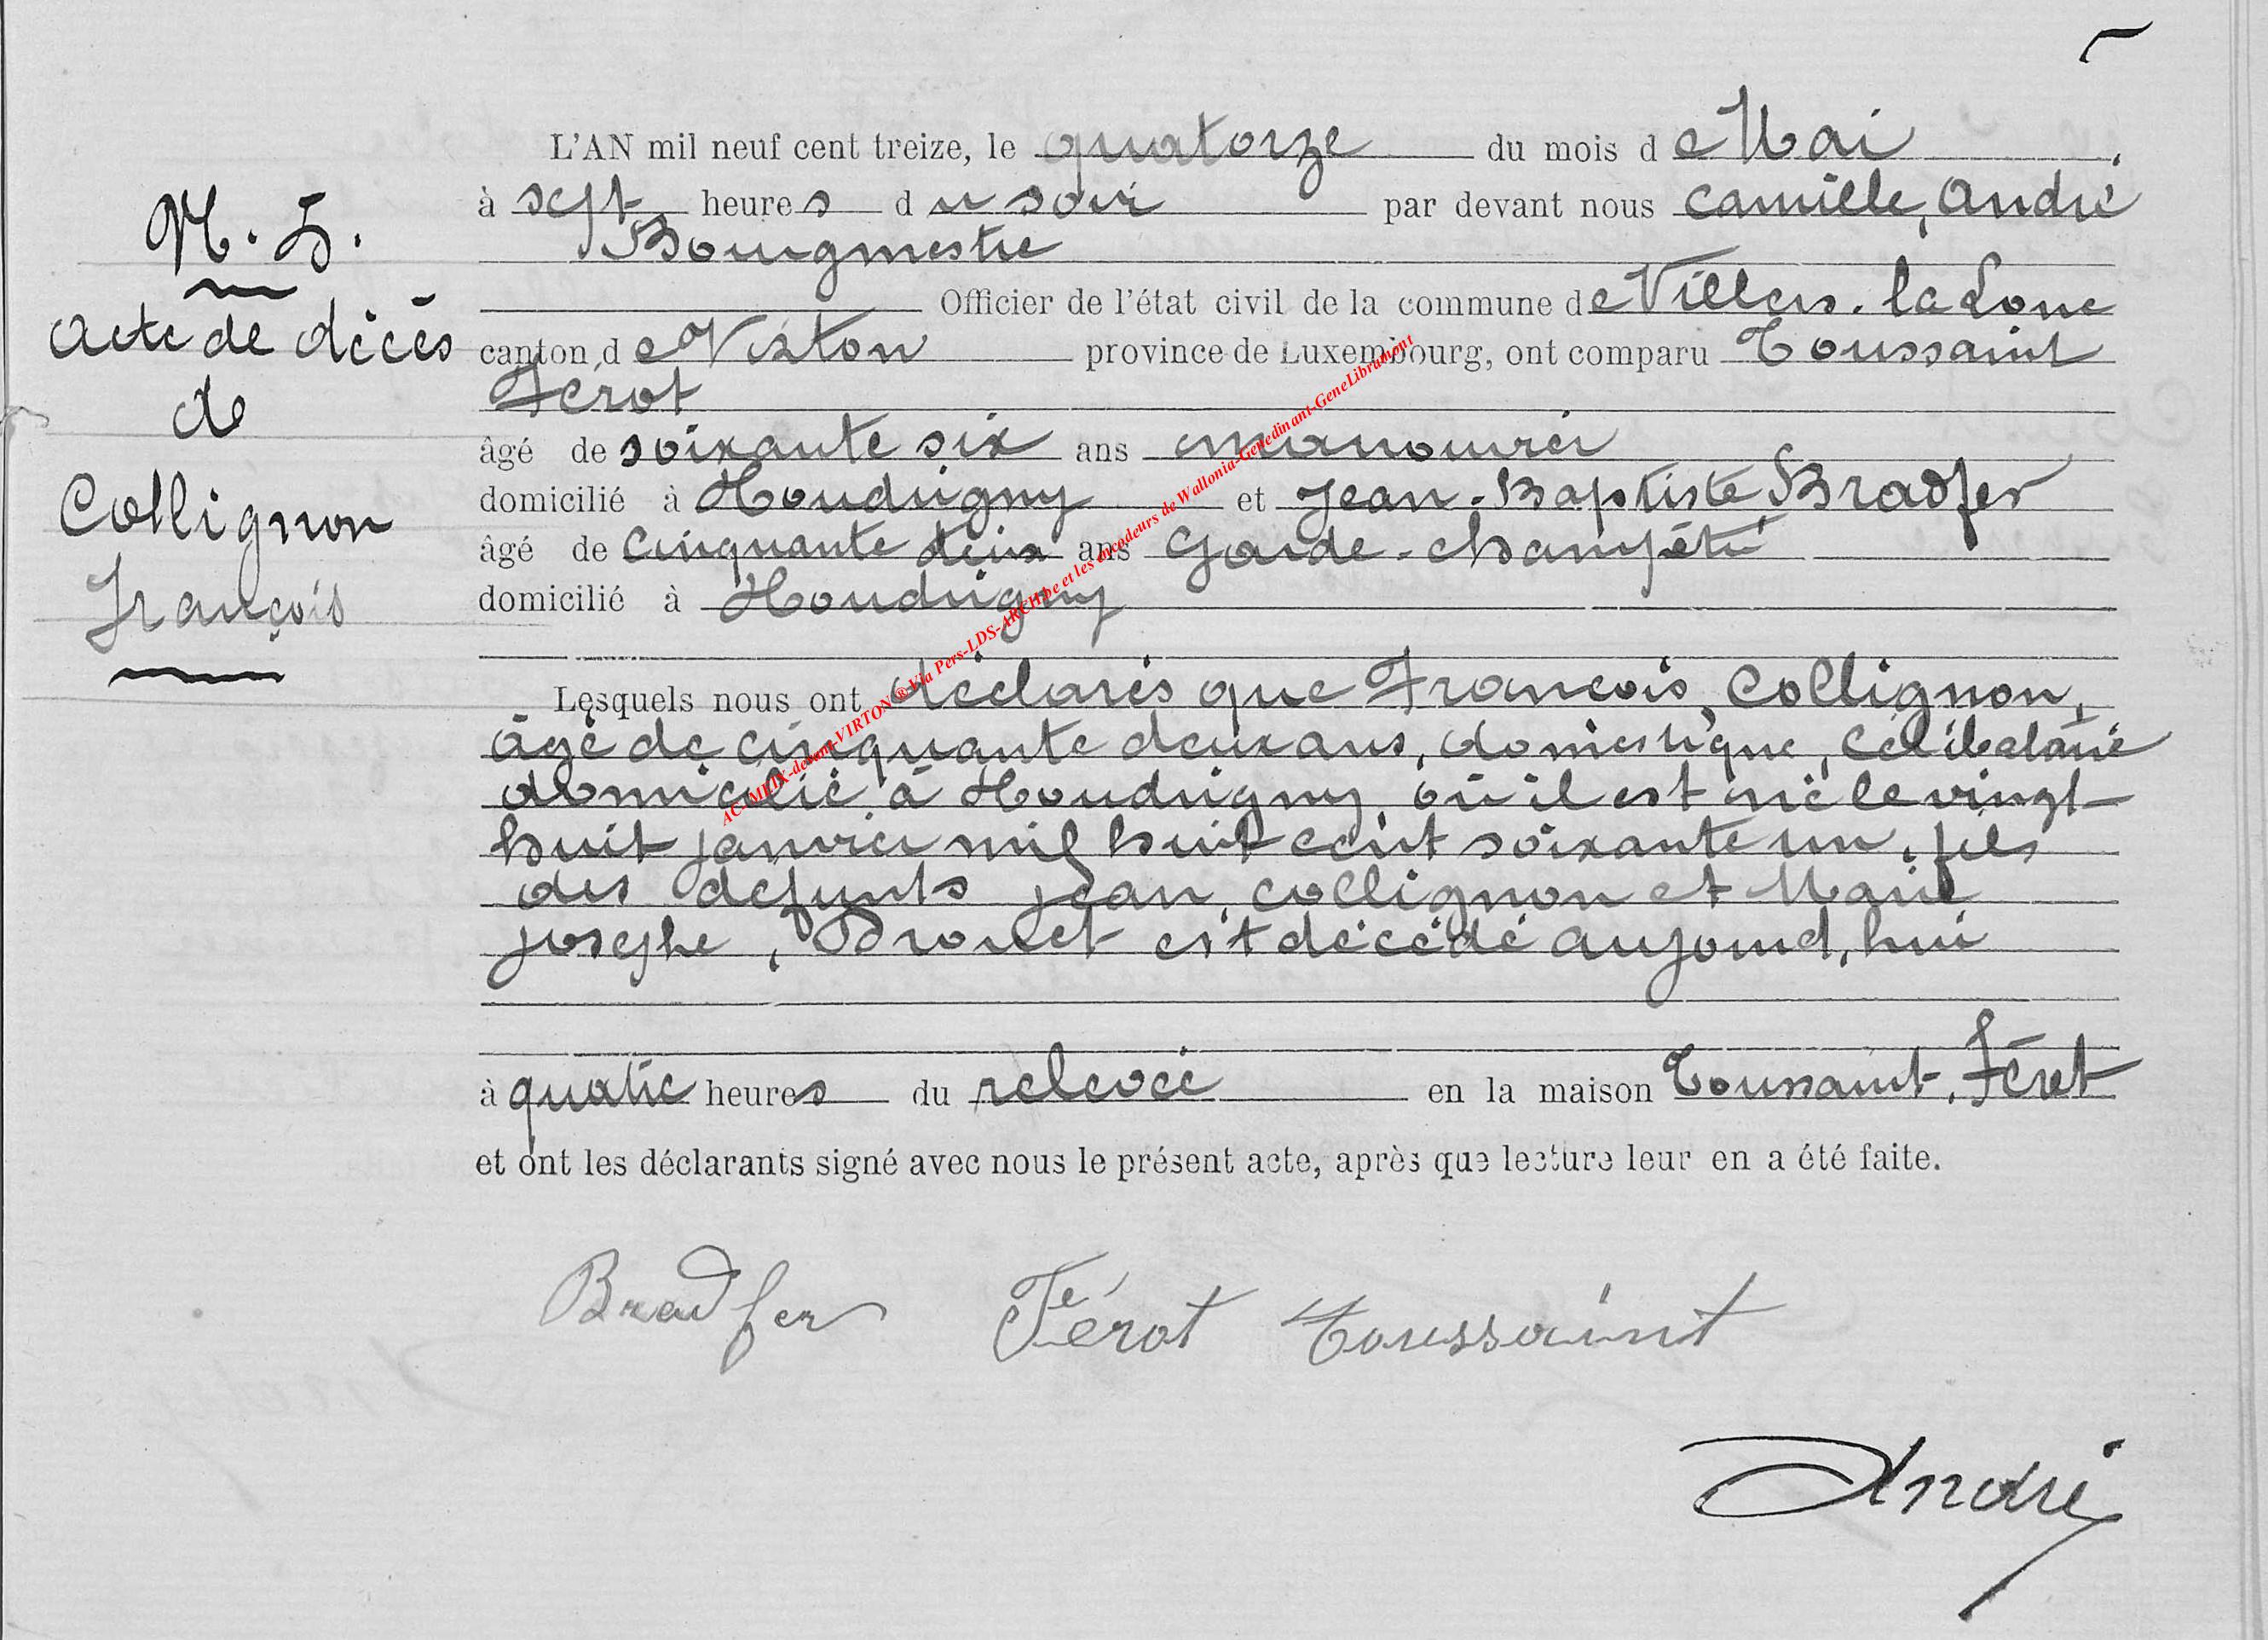 L'AN mil neuf cent treize, le quatorze du mois de Mai.
à sept heures du soir par devant nous Camille, André
Bourgmestre
Officier de l'état civil de la commune de Villers-la Loue
canton de Virton province de Luxembourg, ont comparu Toussaint
Férot
âgé de soixante six ans manouvrier
domicilié à Houdrigny et Jean-Baptiste, Bradfer
âgé de cinquante deux ans Garde-champêtre
domicilié à Houdrigny
N. 5.
Acte de décès
de
Collignon
François
Lesquels nous ont déclarés que François, Collignon,
âgé de cinquante deux ans, domestique, célibataire
domicilié à Houdrigny, où il est né le vingt
huit janvier mil huit cent soixante un, fils
des defunts Jean, Collignon et Marie
Josephe, Drouet est décédé aujourd,hui
à quatre heures du relevée en la maison Toussaint, Féret
et ont les déclarants signé avec nous le présent acte, après que lecture leur en a été faite.
Bradfer Férot Toussaint
André
AC-MEIX-devant-VIRTON ® Via Pers-LDS-ARCH.be et les encodeurs de Wallonia-Genedinant-GeneLibramont